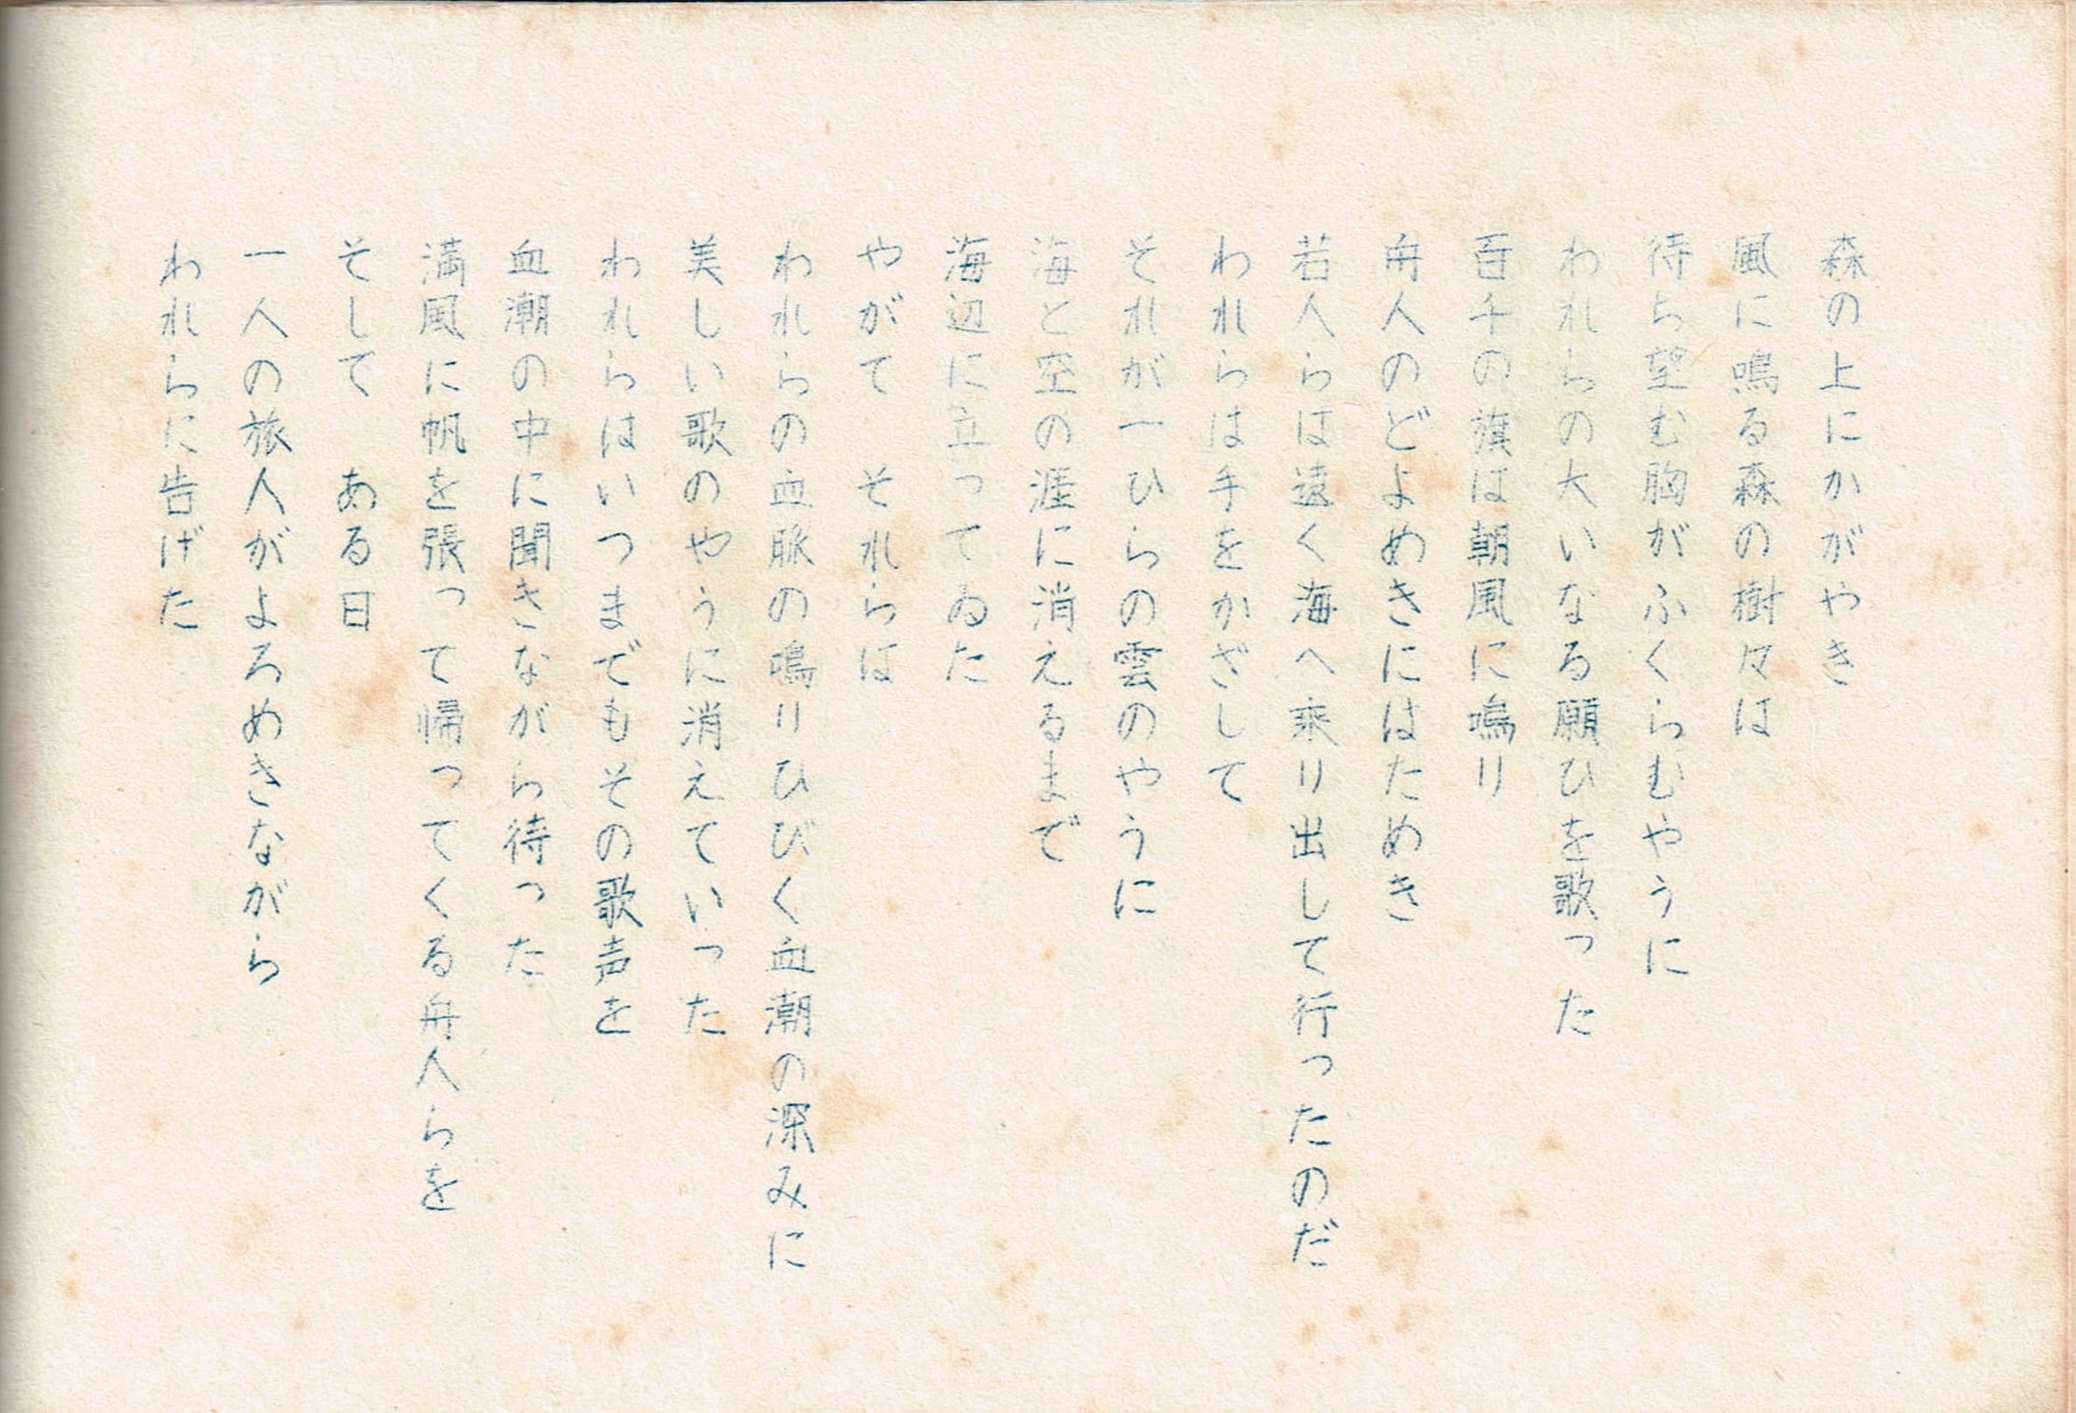 森の上にかがやき
風に鳴る森の樹々は
待ち望む胸がふくらむやうに
われらの大いなる願ひを歌った
百千の旗は朝風に鳴り
舟人のどよめきにはためき
若人らは遠く海へ乗り出して行ったのだ
われらは手をかざして
それが一ひらの雲のやうに
海と空の涯に消えるまで
海辺に立ってゐた
やがて　それらは
われらの血脈の鳴りひびく血潮の深みに
美しい歌のやうに消えていった
われらはいつまでもその歌声を
血潮の中に聞きながら待った
満風に帆を張って帰ってくる舟人らを
そして　ある日
一人の旅人がよろめきながら
われらに告げた